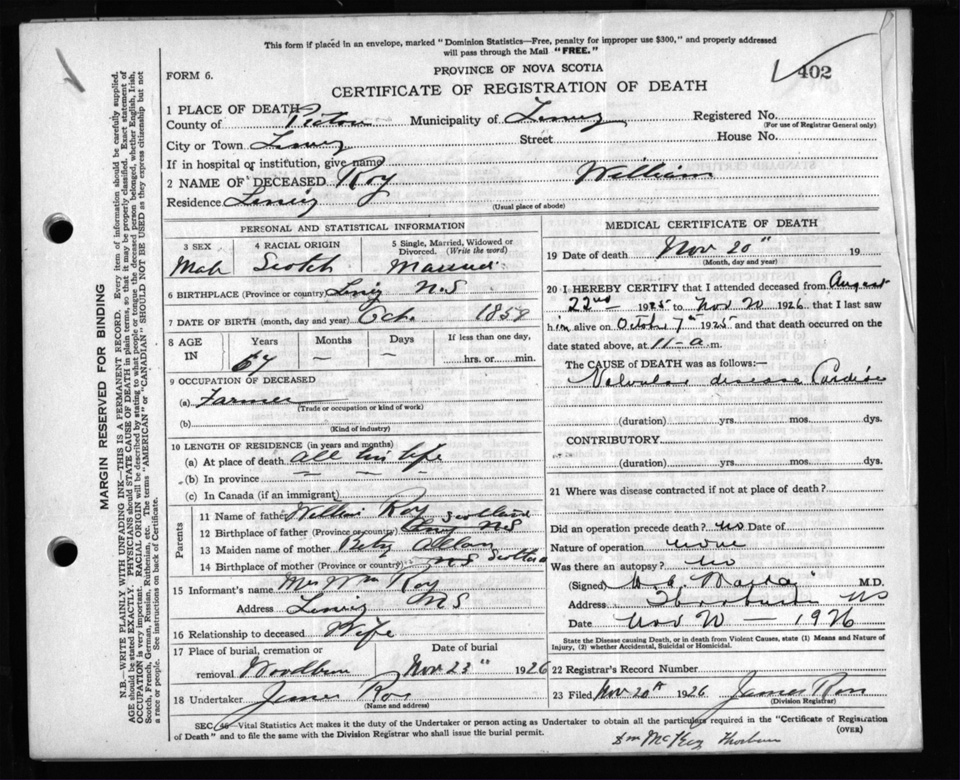 This form if placed in an envelope, marked "Dominion Statistics—Free, penalty for improper use $300," and properly addressed
will pass through the Mail "FREE."
402
FORM 6.
PROVINCE OF NOVA SCOTIA
CERTIFICATE OF REGISTRATION OF DEATH
1 PLACE OF DEATH
County of Pictou Municipality of Registered No.
(For use of Registrar General only)
City or Town Street House No.
If in hospital or institution, give name
2 NAME OF DECEASED Roy William
Residence
(Usual place of abode)
PERSONAL AND STATISTICAL INFORMATION
3 SEX 4 RACIAL ORIGIN 5 Single, Married, Widowed or Divorced. (Write the word)
Male Scotch Married
6 BIRTHPLACE (Province or country) N.S
7 DATE OF BIRTH (month, day and year) 1858
8 AGE IN Years Months Days If less than one day,
67 — — hrs. or min.
9 OCCUPATION OF DECEASED
(a) Farmer
(Trade or occupation or kind of work)
(b)
(Kind of industry)
10 LENGTH OF RESIDENCE (in years and months)
(a) At place of death all his life
(b) In province — — —
(c) In Canada (if an immigrant)
Parents
11 Name of father William Roy
12 Birthplace of father (Province or country) Scotland N.S
13 Maiden name of mother Betsy Allan
14 Birthplace of mother (Province or country) N.S Scotland
15 Informant's name Mrs Wm Roy
Address N.S
16 Relationship to deceased Wife
17 Place of burial, cremation or Date of burial
removal Nov 23" 1926
18 Undertaker James Ross
(Name and address)
MEDICAL CERTIFICATE OF DEATH
19 Date of death Nov 20th 19
(Month, day and year)
20 I HEREBY CERTIFY that I attended deceased from August
22nd 1925 to Nov 20 1926. that I last saw
him alive on October 7th 1925 and that death occurred on
date stated above, at 11 - a.m.
The CAUSE OF DEATH was as follows:—
Valvular disease Cardiac
(duration) yrs. mos. dys.
CONTRIBUTORY
(duration) yrs. mos. dys.
21 Where was disease contracted if not at place of death?
Did an operation precede death? no Date of
Nature of operation none
Was there an autopsy? no
(Signed) M.D.
Address Thorburn NS
Date Nov 20 — 1926
State the Disease causing Death, or in death from Violent Causes, state (1) Means and Nature of
Injury, (2) whether Accidental, Suicidal or Homicidal.
22 Registrar's Record Number
23 Filed Nov 20th 1926 James Ross
(Division Registrar)
SEC. 46—Vital Statistics Act makes it the duty of the Undertaker or person acting as Undertaker to obtain all the particulars required in the "Certificate of Registration
of Death" and to file the same with the Division Registrar who shall issue the burial permit.
(OVER)
Thorburn
MARGIN RESERVED FOR BINDING
N.B.—WRITE PLAINLY WITH UNFADING INK—THIS IS A PERMANENT RECORD. Every item of information should be carefully supplied.
AGE should be stated EXACTLY. PHYSICIANS should STATE CAUSE OF DEATH in plain terms, so that it may be properly classified. Exact statement of
OCCUPATION is very important. RACIAL ORIGIN will be described by stating to what people or tongue the deceased person belonged, whether English, Irish,
Scotch, French, German, Russian, Ruthenian, etc. The terms "AMERICAN" or "CANADIAN" SHOULD NOT BE USED as they express citizenship but not
a race or people. See instructions on back of Certificate.